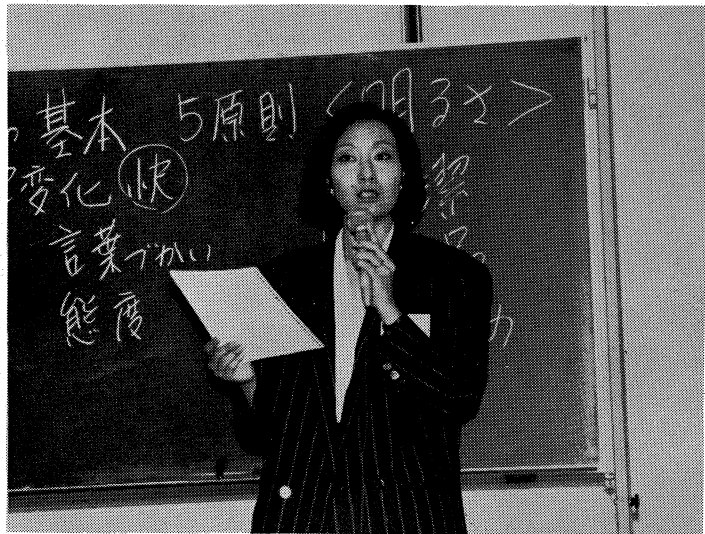 基本 5原則 <明るさ>
変化 快 潔
言葉づかい
態度 力